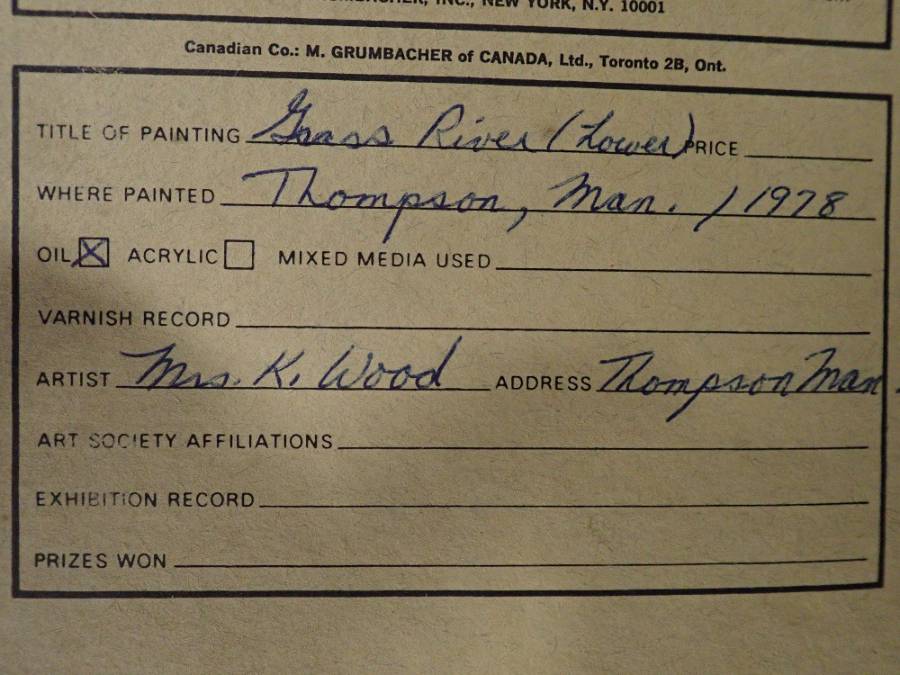 INC., NEW YORK, N.Y. 10001
Canadian Co.: M. GRUMBACHER of CANADA, Ltd., Toronto 2B, Ont.
TITLE OF PAINTING Grass River (Lower) PRICE
WHERE PAINTED Thompson, Man. / 1978
OIL ☒ ACRYLIC ☐ MIXED MEDIA USED
VARNISH RECORD
ARTIST Mrs. K. Wood ADDRESS Thompson Man.
ART SOCIETY AFFILIATIONS
EXHIBITION RECORD
PRIZES WON